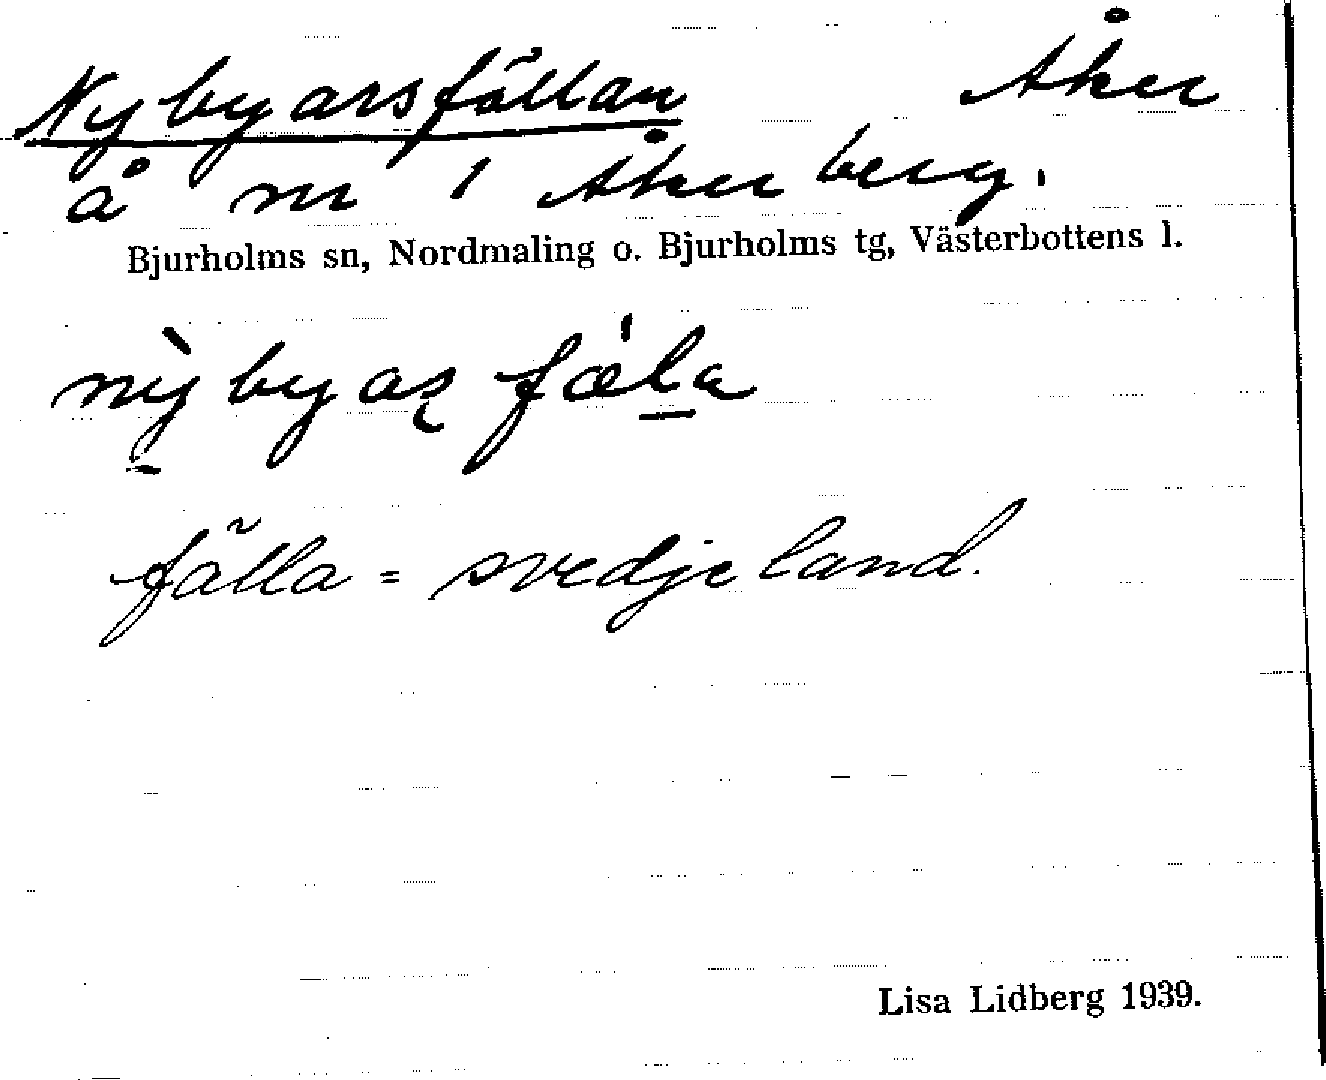 Nybyarsfällan Åker
å nr 1 Åkerberg.
Bjurholms sn, Nordmaling o. Bjurholms tg, Västerbottens l.
nỳbyaʂfǽla
fälla = svedjeland.
Lisa Lidberg 1939.